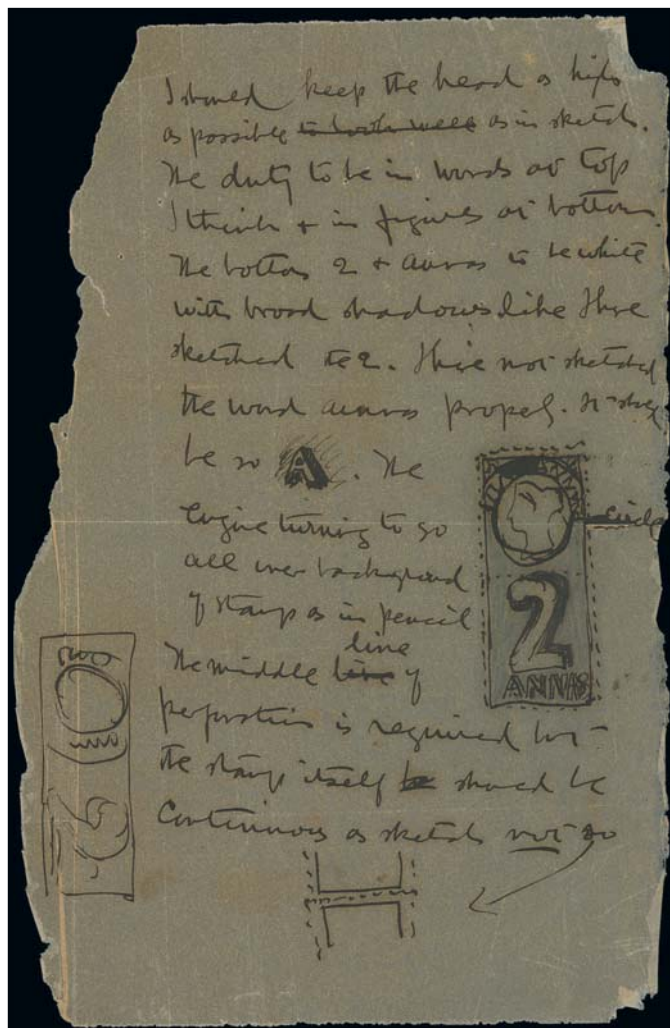 I should keep the head as high
as possible to look well as in sketch.
The duty to be in words at top
I think & in figures at bottom.
The bottom 2 & annas to be white
with broad shadows like I have
sketched the 2. I have not sketched
the word annas properly. It should
be so A. The
engine turning to go
all over background
of stamp as in pencil
circle
2
ANNAS
line
The middle line of
perforation is required but
the stamp itself be should be
continuous as sketch not so